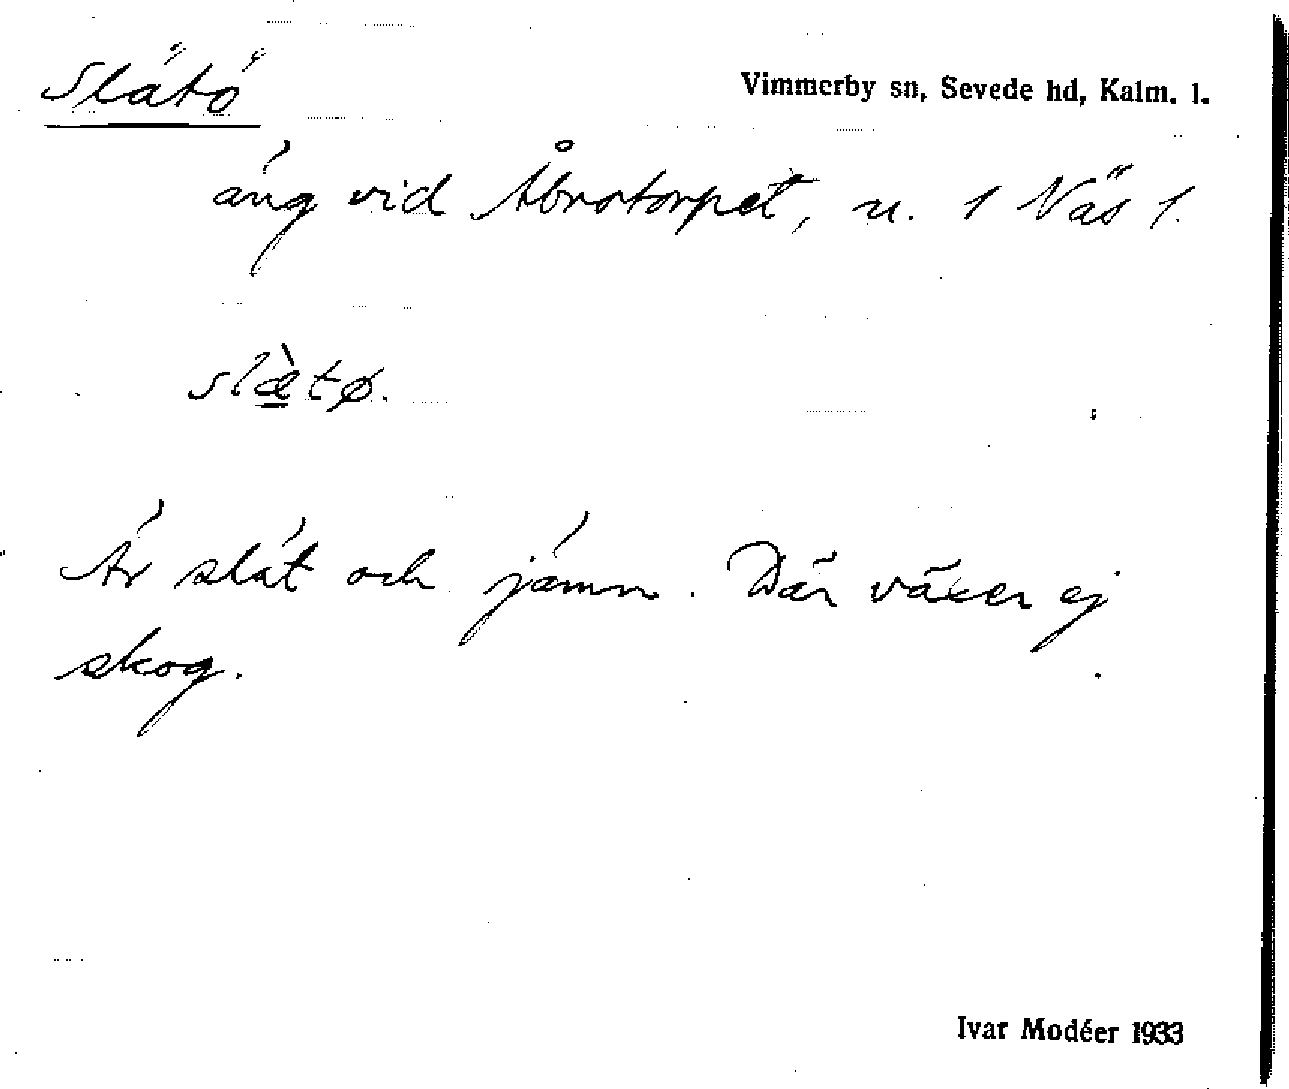 Slätö
Vimmerby sn, Sevede hd, Kalm. l.
äng vid Åbrotorpet, u. 1 Näs 1.
slæ̀tø.
Är slät och jämn. Där växer ej
skog.
Ivar Modéer 1933